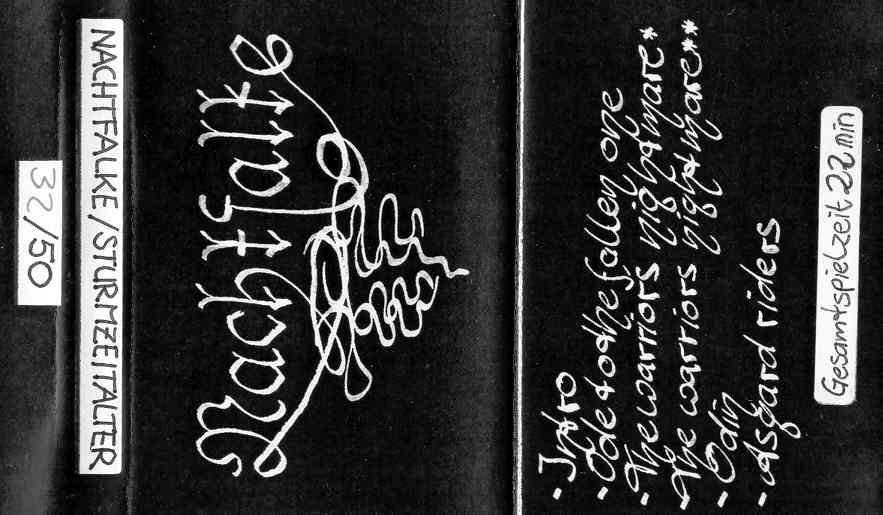 32/50
NACHTFALKE/STURMZEITALTER
Nachtfalke
- Intro
- Ode to the fallen one
- The warriors nightmare*
- The warriors nightmare**
- Odin
- Asgard riders
Gesamtspielzeit 22 min